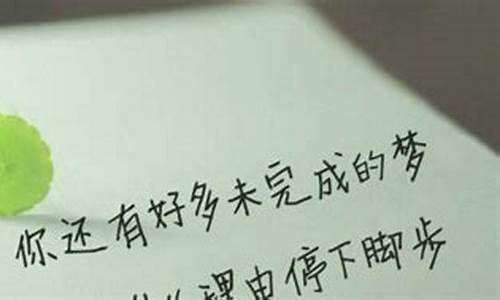 你还有好多未完成的梦
什么理由停下脚步